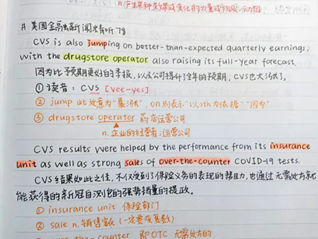 # 美国金融新闻
CVS is also jumping on better-than-expected quarterly earnings,
with the drugstore operator also raising its full-year forecast.
因为比预期更好的季报，以及公司提升了全年的预期，CVS也大涨了。
① 读音：CVS [vee-yes]
② jump at 处意为“暴涨”，on 则表示
③ drugstore operator 药店运营公司
n. 企业的经营者；运营公司
CVS results were helped by the performance from its insurance
unit as well as strong sales of over-the-counter COVID-19 tests.
CVS 结果如此之佳，不仅受到保险义务的表现的帮助，也通过无需处方就
能获得的新冠自测包的强势销量的提振。
① insurance unit 保险部门
② sale n. 销售额
over-the-counter 即 OTC 无需处方的